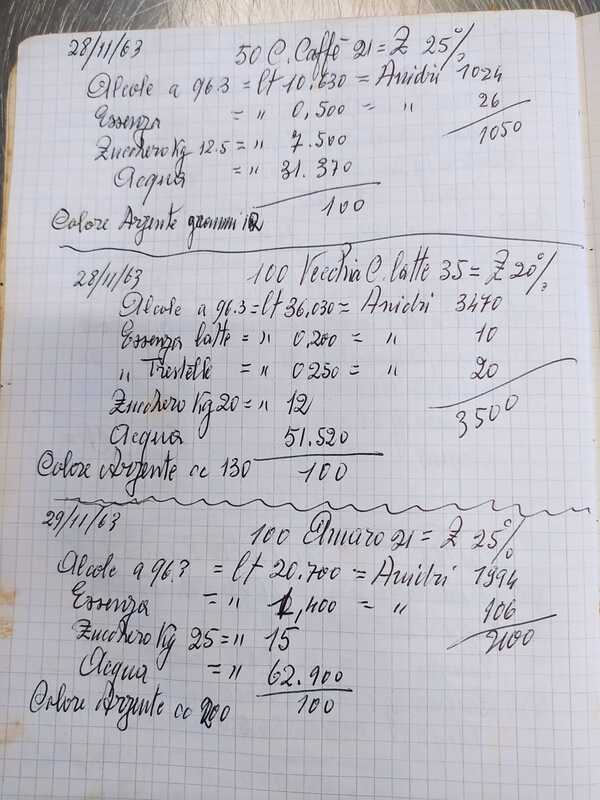 28/11/63 50 C. Caffè 21 = Z 25%
Alcole a 96.3 = lt 10.630 = Anidri 1024
Essenza = " 0,500 = " 26
Zucchero Kg 12.5 = " 7.500 1050
Acqua = " 31.370
100
Colore Argente grammi
28/11/63 100 Vecchia C. latte 35 = Z 20%
Alcole a 96.3 = lt 36,030 = Anidri 3470
Essenza latte = " 0,200 = " 10
" Trestelle = " 0250 = " 20
Zucchero Kg 20 = " 12 3500
Acqua 51.520
Colore Argente cc 130 100
29/11/63 100 Amaro 21 = Z 25%
Alcole a 96.3 = lt 20.700 = Anidri 1994
Essenza = " 1,400 = " 106
Zucchero Kg 25 = " 15 2100
Acqua = " 62.900
Colore Argente cc 200 100